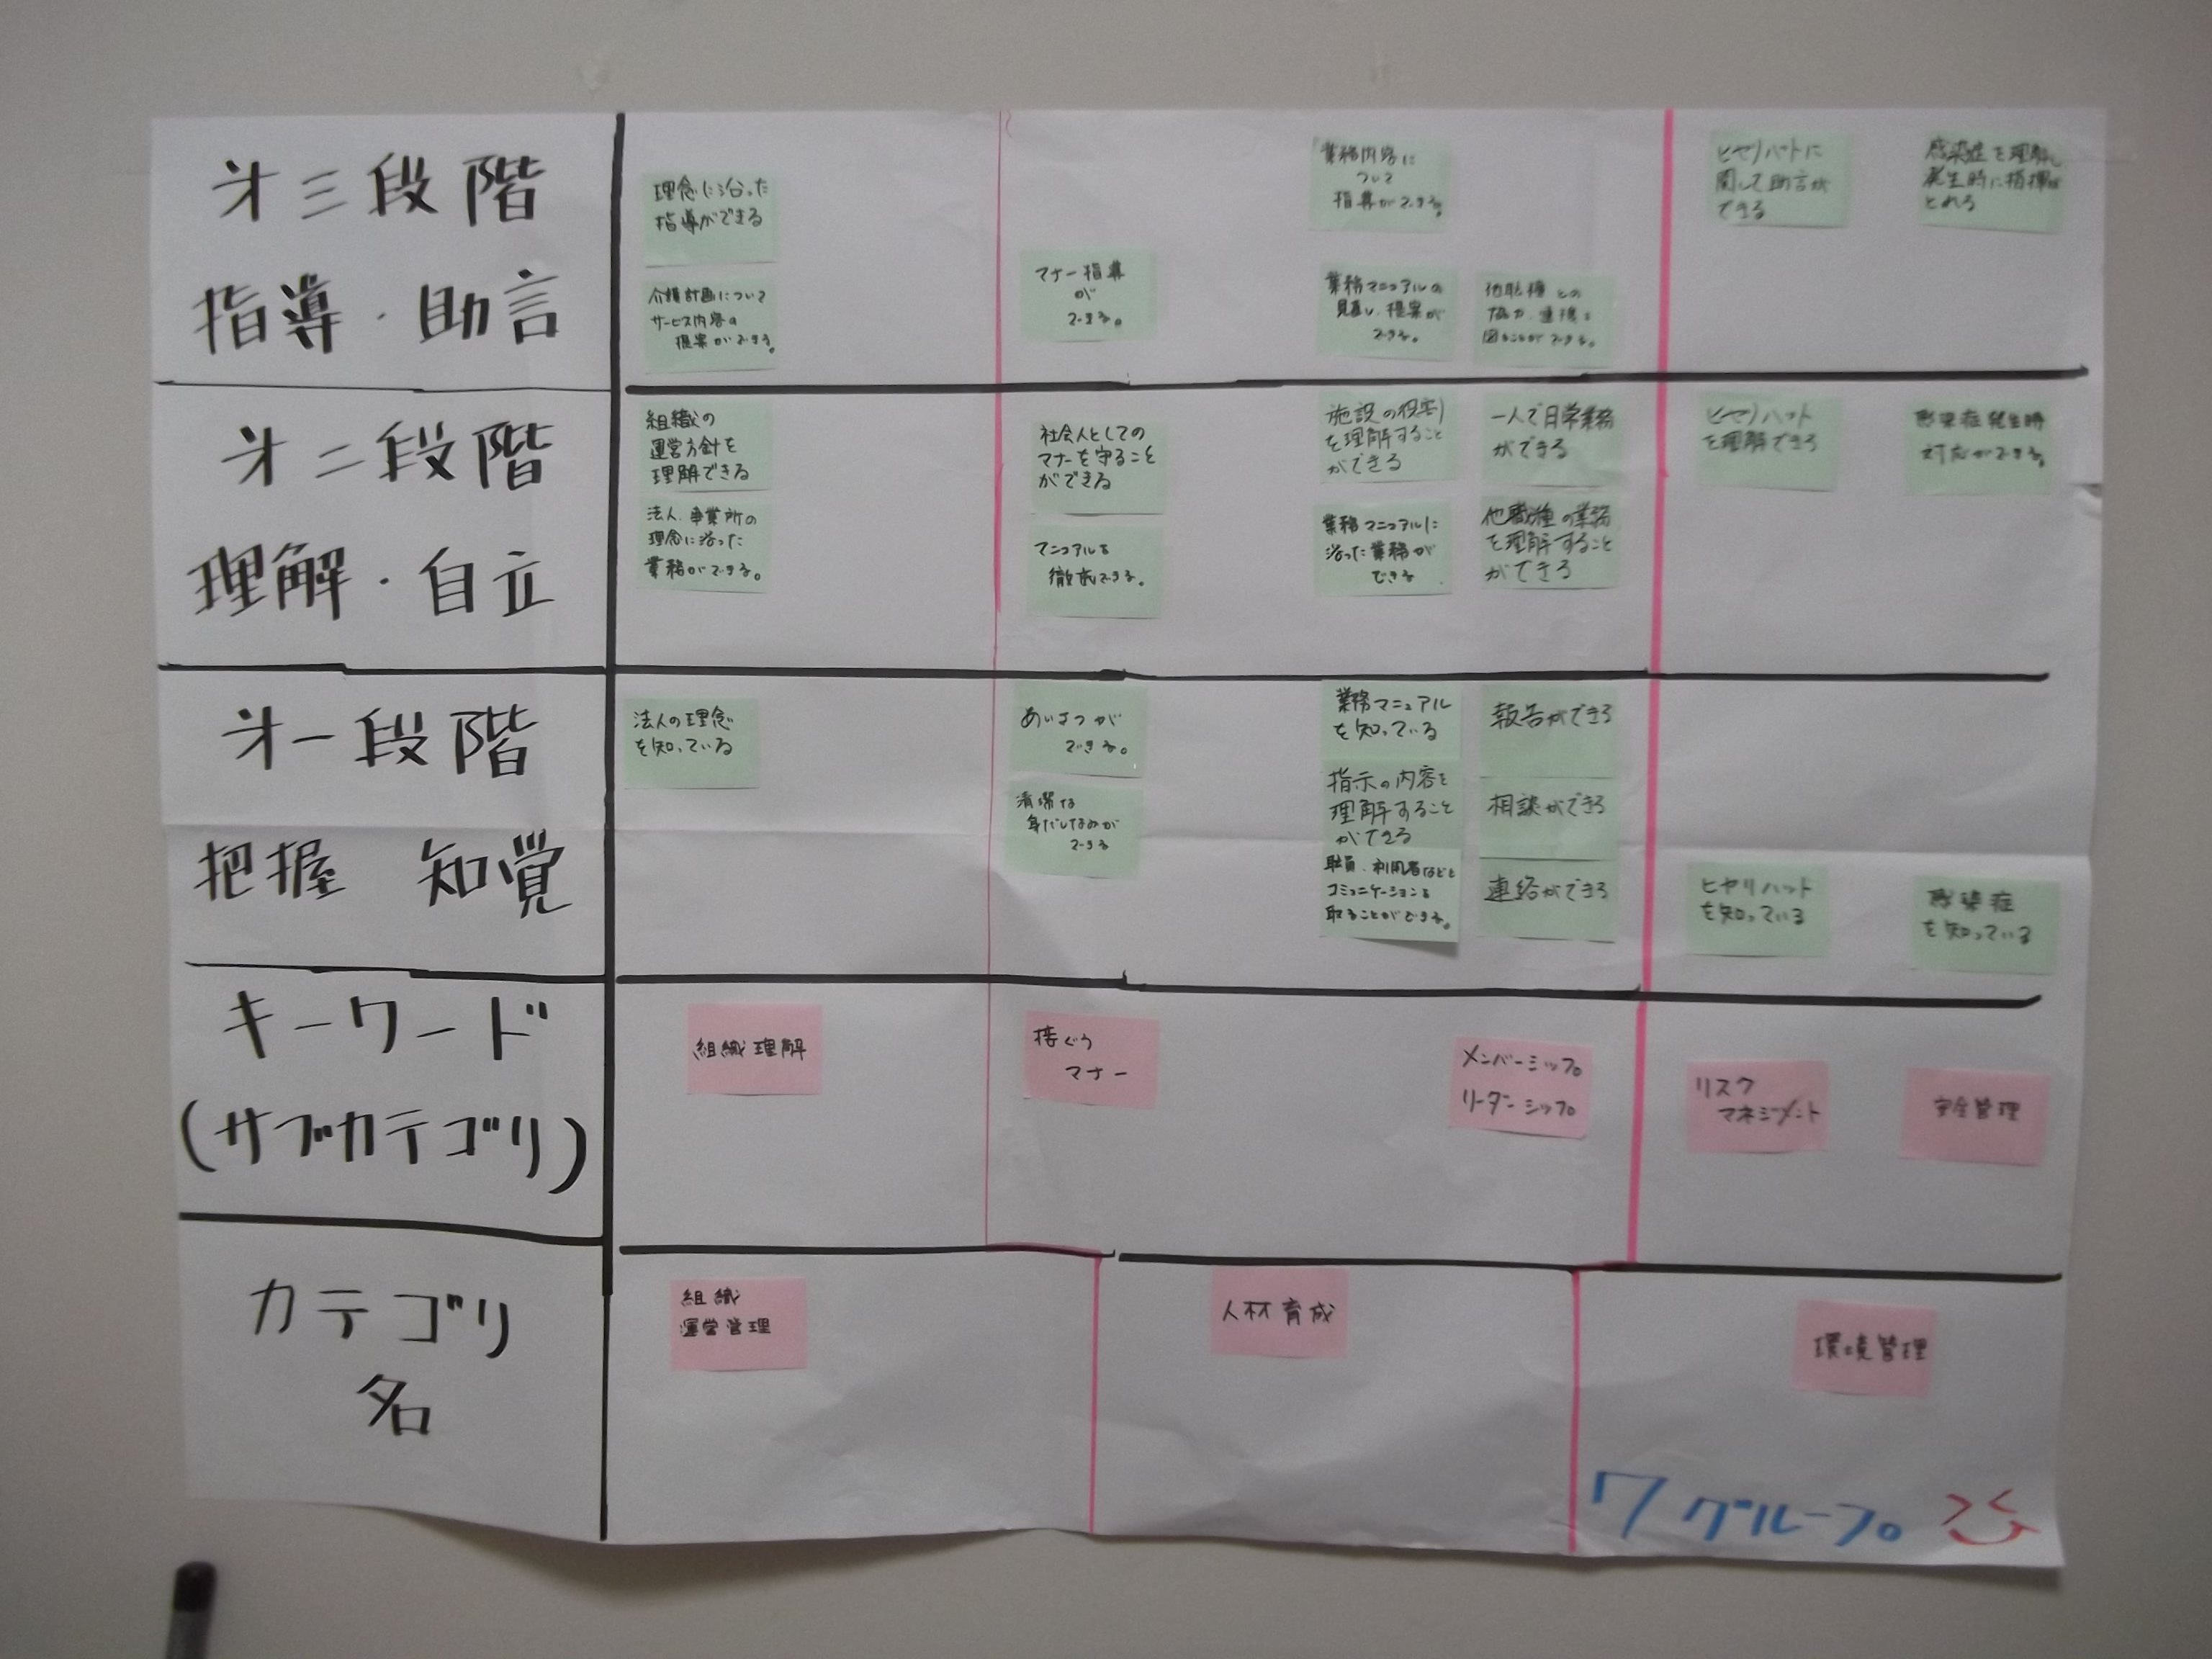 才三段階
指導・助言
理念に沿った
指導ができる
介護計画について
サービス内容の
提案ができる。
マナー指導
が
できる。
業務内容に
ついて
指導ができる。
業務マニュアルの
見直し、提案が
できる。
他職種との
協力、連携を
図ることができる。
ヒヤリハットに
関して助言が
できる
感染症を理解し
発生時に指揮が
とれる
才二段階
理解・自立
組織の
運営方針を
理解できる
法人、事業所の
理念に沿った
業務ができる。
社会人としての
マナーを守ること
ができる
マニュアルを
徹底できる。
施設の役割
を理解すること
ができる
業務マニュアルに
沿った業務が
できる
一人で日常業務
ができる
他職種の業務
を理解すること
ができる
ヒヤリハット
を理解できる
感染症発生時
対応ができる。
才一段階
把握 知覚
法人の理念
を知っている
あいさつが
できる。
清潔な
身だしなみが
できる
業務マニュアル
を知っている
指示の内容を
理解すること
ができる
職員、利用者などと
コミュニケーションを
取ることができる。
報告ができる
相談ができる
連絡ができる
ヒヤリハット
を知っている
感染症
を知っている
キーワード
(サブカテゴリ)
組織理解
接ぐう
マナー
メンバーシップ
リーダーシップ
リスク
マネジメント
安全管理
カテゴリ
名
組織
運営管理
人材育成
環境管理
7グループ